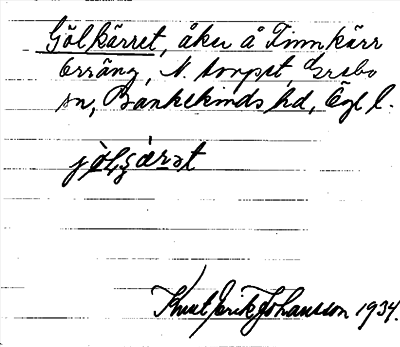 Gölkärret, åker å Finnkärr
N. torpet, Grebo
sn, Bankekinds hd, Ögl l.
Knut Erik Johansson 1934.